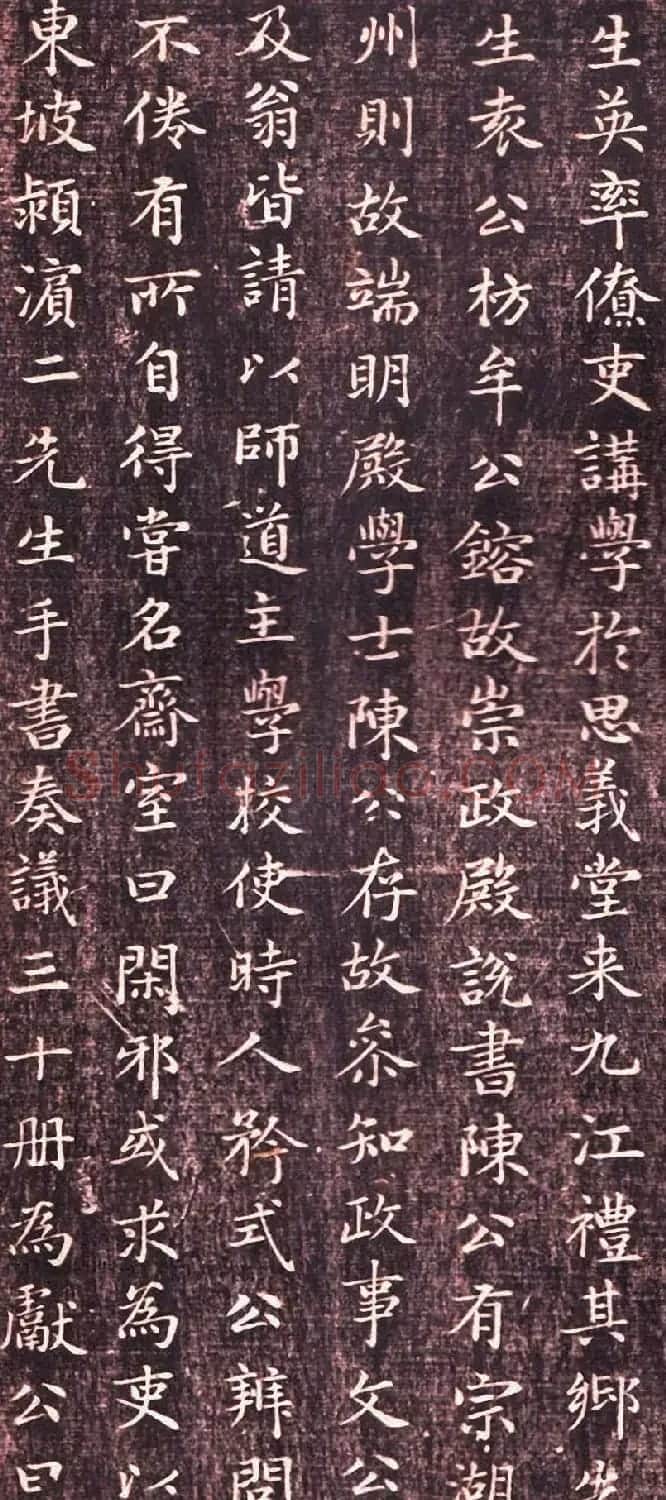 生英率僚吏講學於思義堂来九江禮其鄉先
生袁公枋牟公鎔故崇政殿説書陳公有宗湖
州則故端明殿學士陳公存故叅知政事文公
及翁皆請以師道主學校使時人矜式公辨問
不倦有所自得嘗名齋室曰閑邪或求為吏以
東坡潁濱二先生手書奏議三十册為獻公曰
Shufaziliao.COM